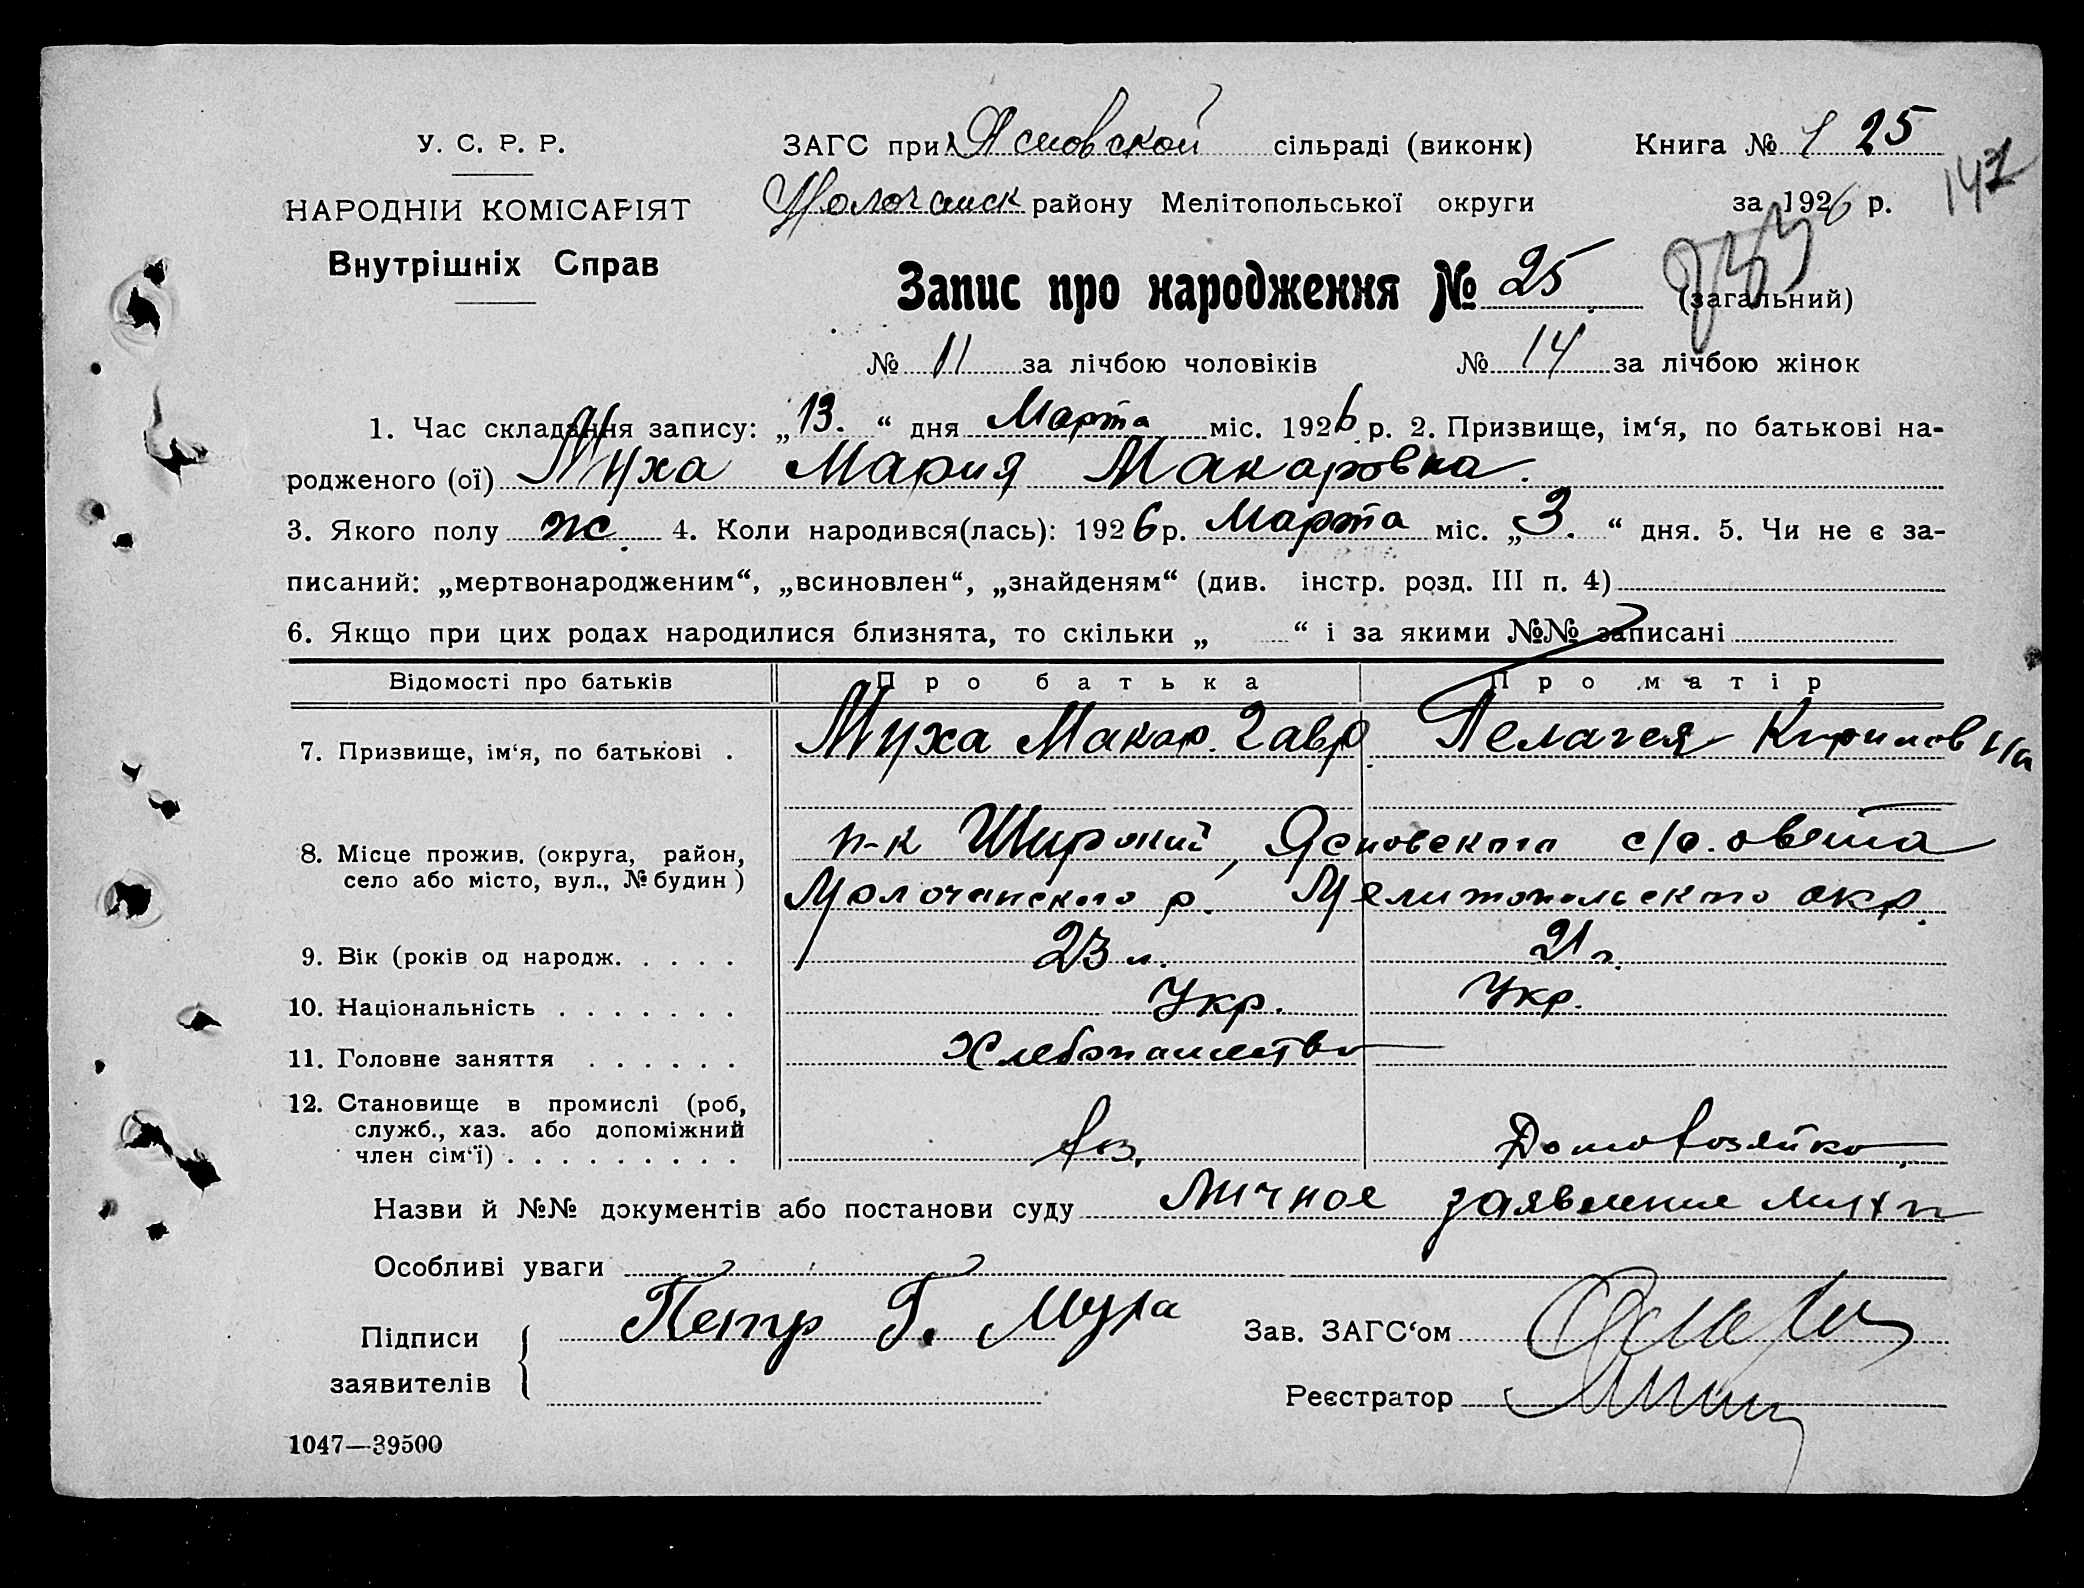 У. С. Р. Р.
НАРОДНІЙ КОМІСАРІЯТ
Внутрішніх Справ
ЗАГС при Ясновской сільраді (виконк)
Молочанск району Мелітопольської округи
Книга № 1 25
за 1926 р.
147
Запис про народження № 25 (загальний)
№ 11 за лічбою чоловіків № 14 за лічбою жінок
1. Час складання запису: „13.“ дня Марта міс. 1926 р. 2. Призвище, ім‘я, по батькові на-
родженого (ої) Муха Мария Макаровна.
3. Якого полу ж. 4. Коли народився(лась): 1926 р. Марта міс. „3.“ дня. 5. Чи не є за-
писаний: „мертвонародженим“, „всиновлен“, „знайденям“ (див. інстр. розд. III п. 4)
6. Якщо при цих родах народилися близнята, то скільки „ “ і за якими №№ записані
Відомості про батьків Про батька Про матір
7. Призвище, ім‘я, по батькові . Муха Макар. Гавр Пелагея Кирилов
8. Місце прожив. (округа, район, п-к Широкий, Ясновского с/совета
село або місто, вул., № будин) Молочанского р. Мелитопольского окр.
9. Вік (років од народж. . . . . 23 л. 21 г.
10. Національність . . . . . . . Укр. Укр.
11. Головне заняття . . . . . . Хлебопашество
12. Становище в промислі (роб,
служб., хаз. або допоміжний
член сім‘ї) . . . . . . . . . хоз. Домохозяйка
Назви й №№ документів або постанови суду Личное заявление
Особливі уваги
Підписи заявителів Петр Г. Муха
Зав. ЗАГС‘ом
Реєстратор
1047—39500